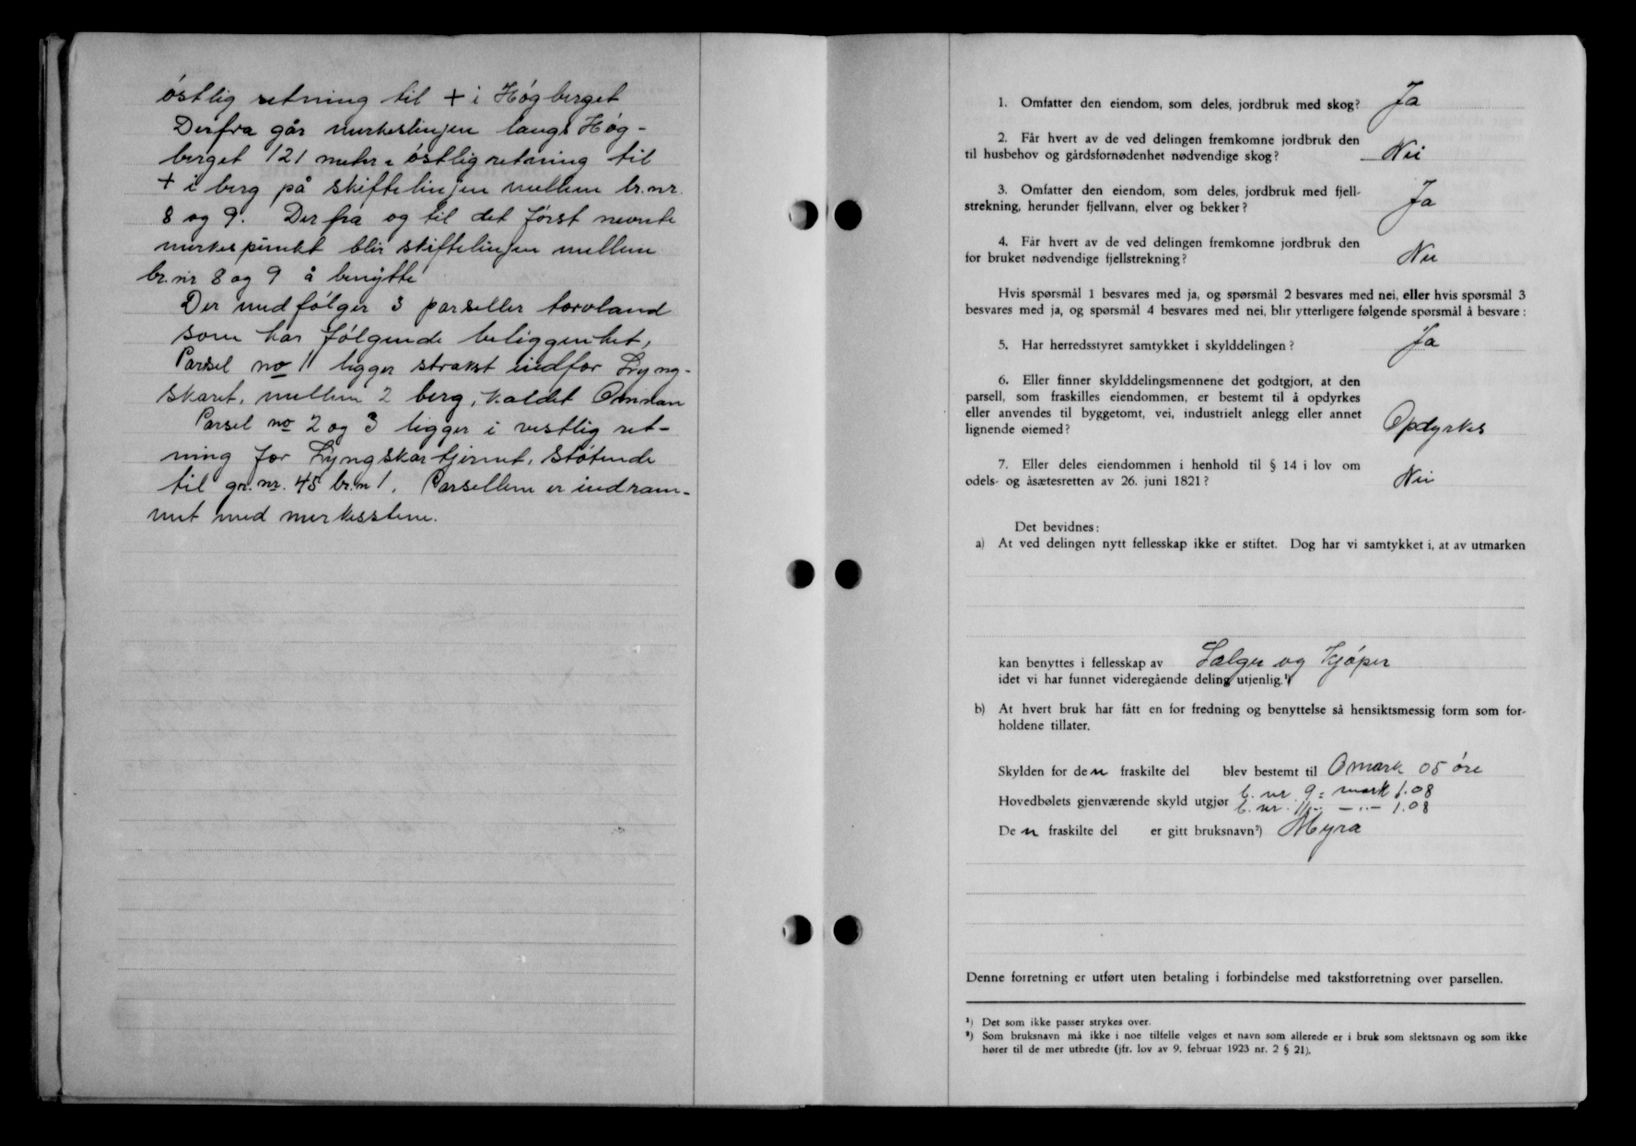 østlig retning til + i Høgberget
Derfra går merkeslinjen langs Høg-
berget 121 meter i østlig retning til
+ i berg på skiftelinjen mellem br.nr.
8 og 9. Derfra og til det først nevnte
merkespunkt blir skiftelinjen mellem
br.nr 8 og 9 å benytte
Der medfølger 3 parseller torvland
som har følgende beliggenhet,
Parsel no 1 ligger strakst indfor Lyng-
skaret, mellem 2 berg, kaldet
Parsel no 2 og 3 ligger i vestlig ret-
ning for Lyngskartjernet, støtende
til gr.nr. 45 br.nr 1. Parsellene er indram-
met med merkesstene.
1. Omfatter den eiendom, som deles, jordbruk med skog? Ja
2. Får hvert av de ved delingen fremkomne jordbruk den
til husbehov og gårdsfornødenhet nødvendige skog? Nei
3. Omfatter den eiendom, som deles, jordbruk med fjell-
strekning, herunder fjellvann, elver og bekker? Ja
4. Får hvert av de ved delingen fremkomne jordbruk den
for bruket nødvendige fjellstrekning? Nei
Hvis spørsmål 1 besvares med ja, og spørsmål 2 besvares med nei, eller hvis spørsmål 3
besvares med ja, og spørsmål 4 besvares med nei, blir ytterligere følgende spørsmål å besvare:
5. Har herredsstyret samtykket i skylddelingen? Ja
6. Eller finner skylddelingsmennene det godtgjort, at den
parsell, som fraskilles eiendommen, er bestemt til å opdyrkes
eller anvendes til byggetomt, vei, industrielt anlegg eller annet
lignende øiemed? Opdyrkes
7. Eller deles eiendommen i henhold til § 14 i lov om
odels- og åsætesretten av 26. juni 1821? Nei
Det bevidnes:
a) At ved delingen nytt fellesskap ikke er stiftet. Dog har vi samtykket i, at av utmarken
kan benyttes i fellesskap av Sælger og Kjøper
idet vi har funnet videregående deling utjenlig.¹)
b) At hvert bruk har fått en for fredning og benyttelse så hensiktsmessig form som for-
holdene tillater.
Skylden for den fraskilte del blev bestemt til 0 mark 05 øre
Hovedbølets gjenværende skyld utgjør b. nr. 9 = mark 1.08
b. nr. 11 - — „ — 1.08
Den fraskilte del er gitt bruksnavn²) Myra
Denne forretning er utført uten betaling i forbindelse med takstforretning over parsellen.
¹) Det som ikke passer strykes over.
²) Som bruksnavn må ikke i noe tilfelle velges et navn som allerede er i bruk som slektsnavn og som ikke
hører til de mer utbredte (jfr. lov av 9. februar 1923 nr. 2 § 21).